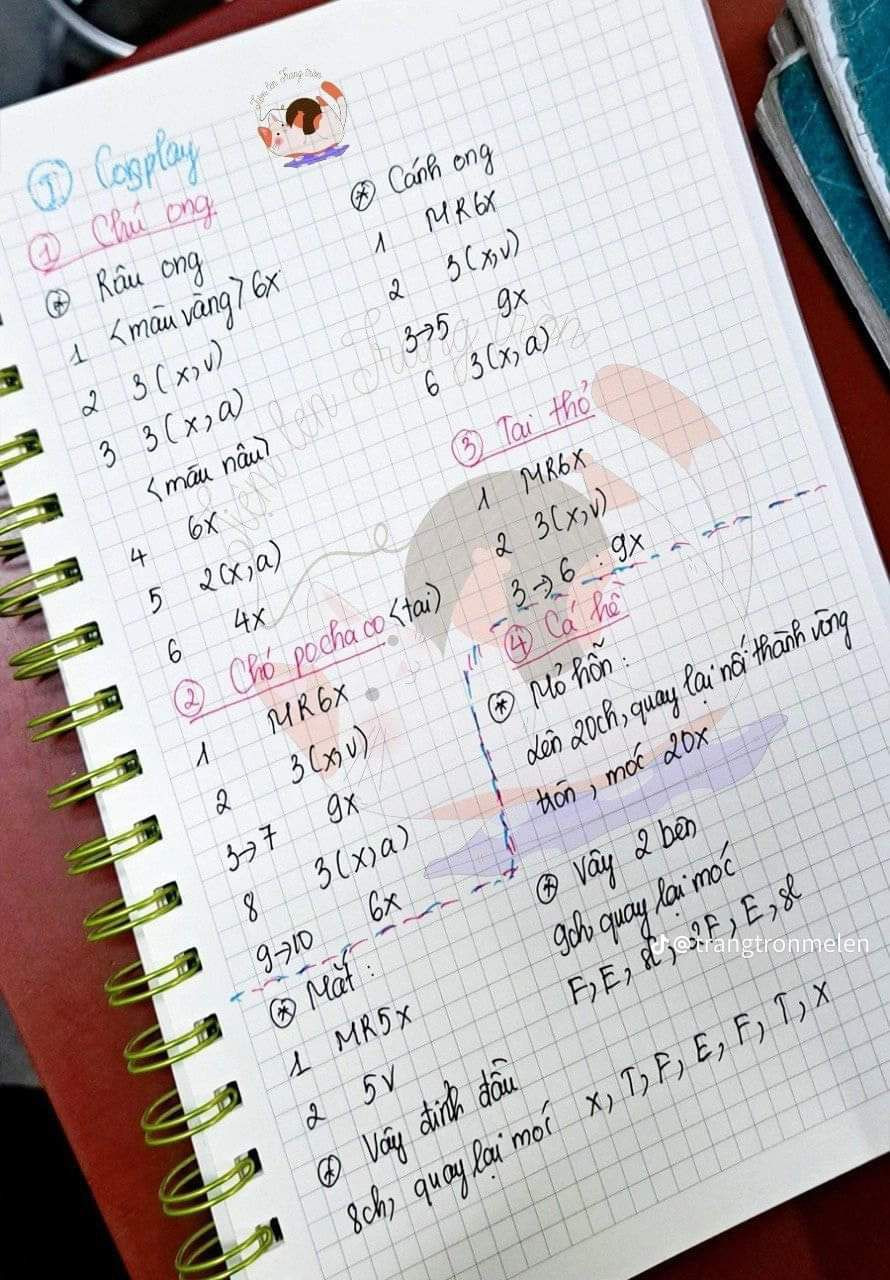 Tiệm len Trang tròn
I Cosplay
1 Chú ong
* Râu ong
1 <màu vàng> 6x
2 3(x,v)
3 3(x,a)
<màu nâu>
4 6x
5 2(x,a)
6 4x
* Cánh ong
1 MR6X
2 3(x,v)
3→5 9x
6 3(x,a)
2 Chó pochacco <tai>
1 MR6X
2 3(x,v)
3→7 9x
8 3(x,a)
9→10 6x
3 Tai thỏ
1 MR6X
2 3(x,v)
3→6 : 9x
4 Cá hề
* Mỏ hỗn :
Lên 20ch, quay lại nối thành vòng
tròn, móc 20x
* Vây 2 bên
9ch, quay lại móc
F, E, sl, 2F, E, sl
* Mắt :
1 MR5X
2 5V
* Vây đỉnh đầu
8ch, quay lại móc x, T, F, E, F, T, X
Tiệm len Trang tròn
@trangtronmelen